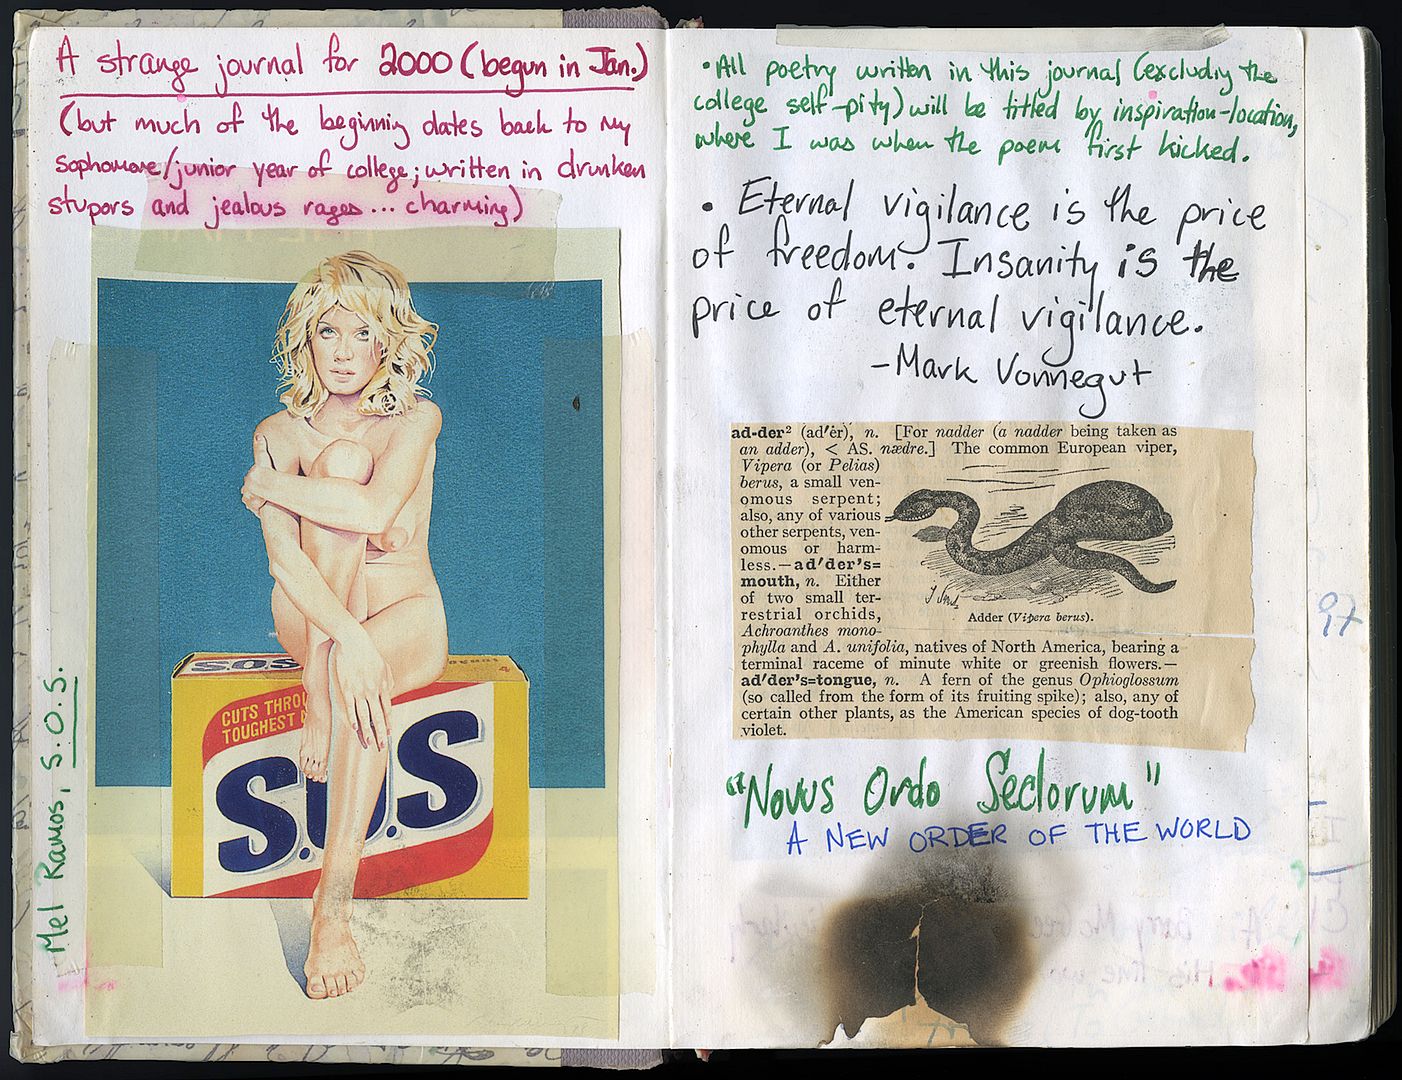 A strange journal for 2000 (begun in Jan.)
(but much of the beginning dates back to my
sophomore/junior year of college; written in drunken
stupors and jealous rages... charming)
S.O.S
CUTS THROU
TOUGHEST
S.O.S
Mel Ramos, S.O.S.
• All poetry written in this journal (excluding the
college self-pity) will be titled by inspiration-location,
where I was when the poem first kicked.
• Eternal vigilance is the price
of freedom. Insanity is the
price of eternal vigilance.
-Mark Vonnegut
ad-der² (ad′ėr), n. [For nadder (a nadder being taken as
an adder), < AS. nædre.] The common European viper,
Vipera (or Pelias)
berus, a small ven-
omous serpent;
also, any of various
other serpents, ven-
omous or harm-
less.—ad′der's=
mouth, n. Either
of two small ter-
restrial orchids,
Achroanthes mono-
phylla and A. unifolia, natives of North America, bearing a
terminal raceme of minute white or greenish flowers.—
ad′der's=tongue, n. A fern of the genus Ophioglossum
(so called from the form of its fruiting spike); also, any of
certain other plants, as the American species of dog-tooth
violet.
Adder (Vipera berus).
"Novus Ordo Seclorum"
A NEW ORDER OF THE WORLD
97